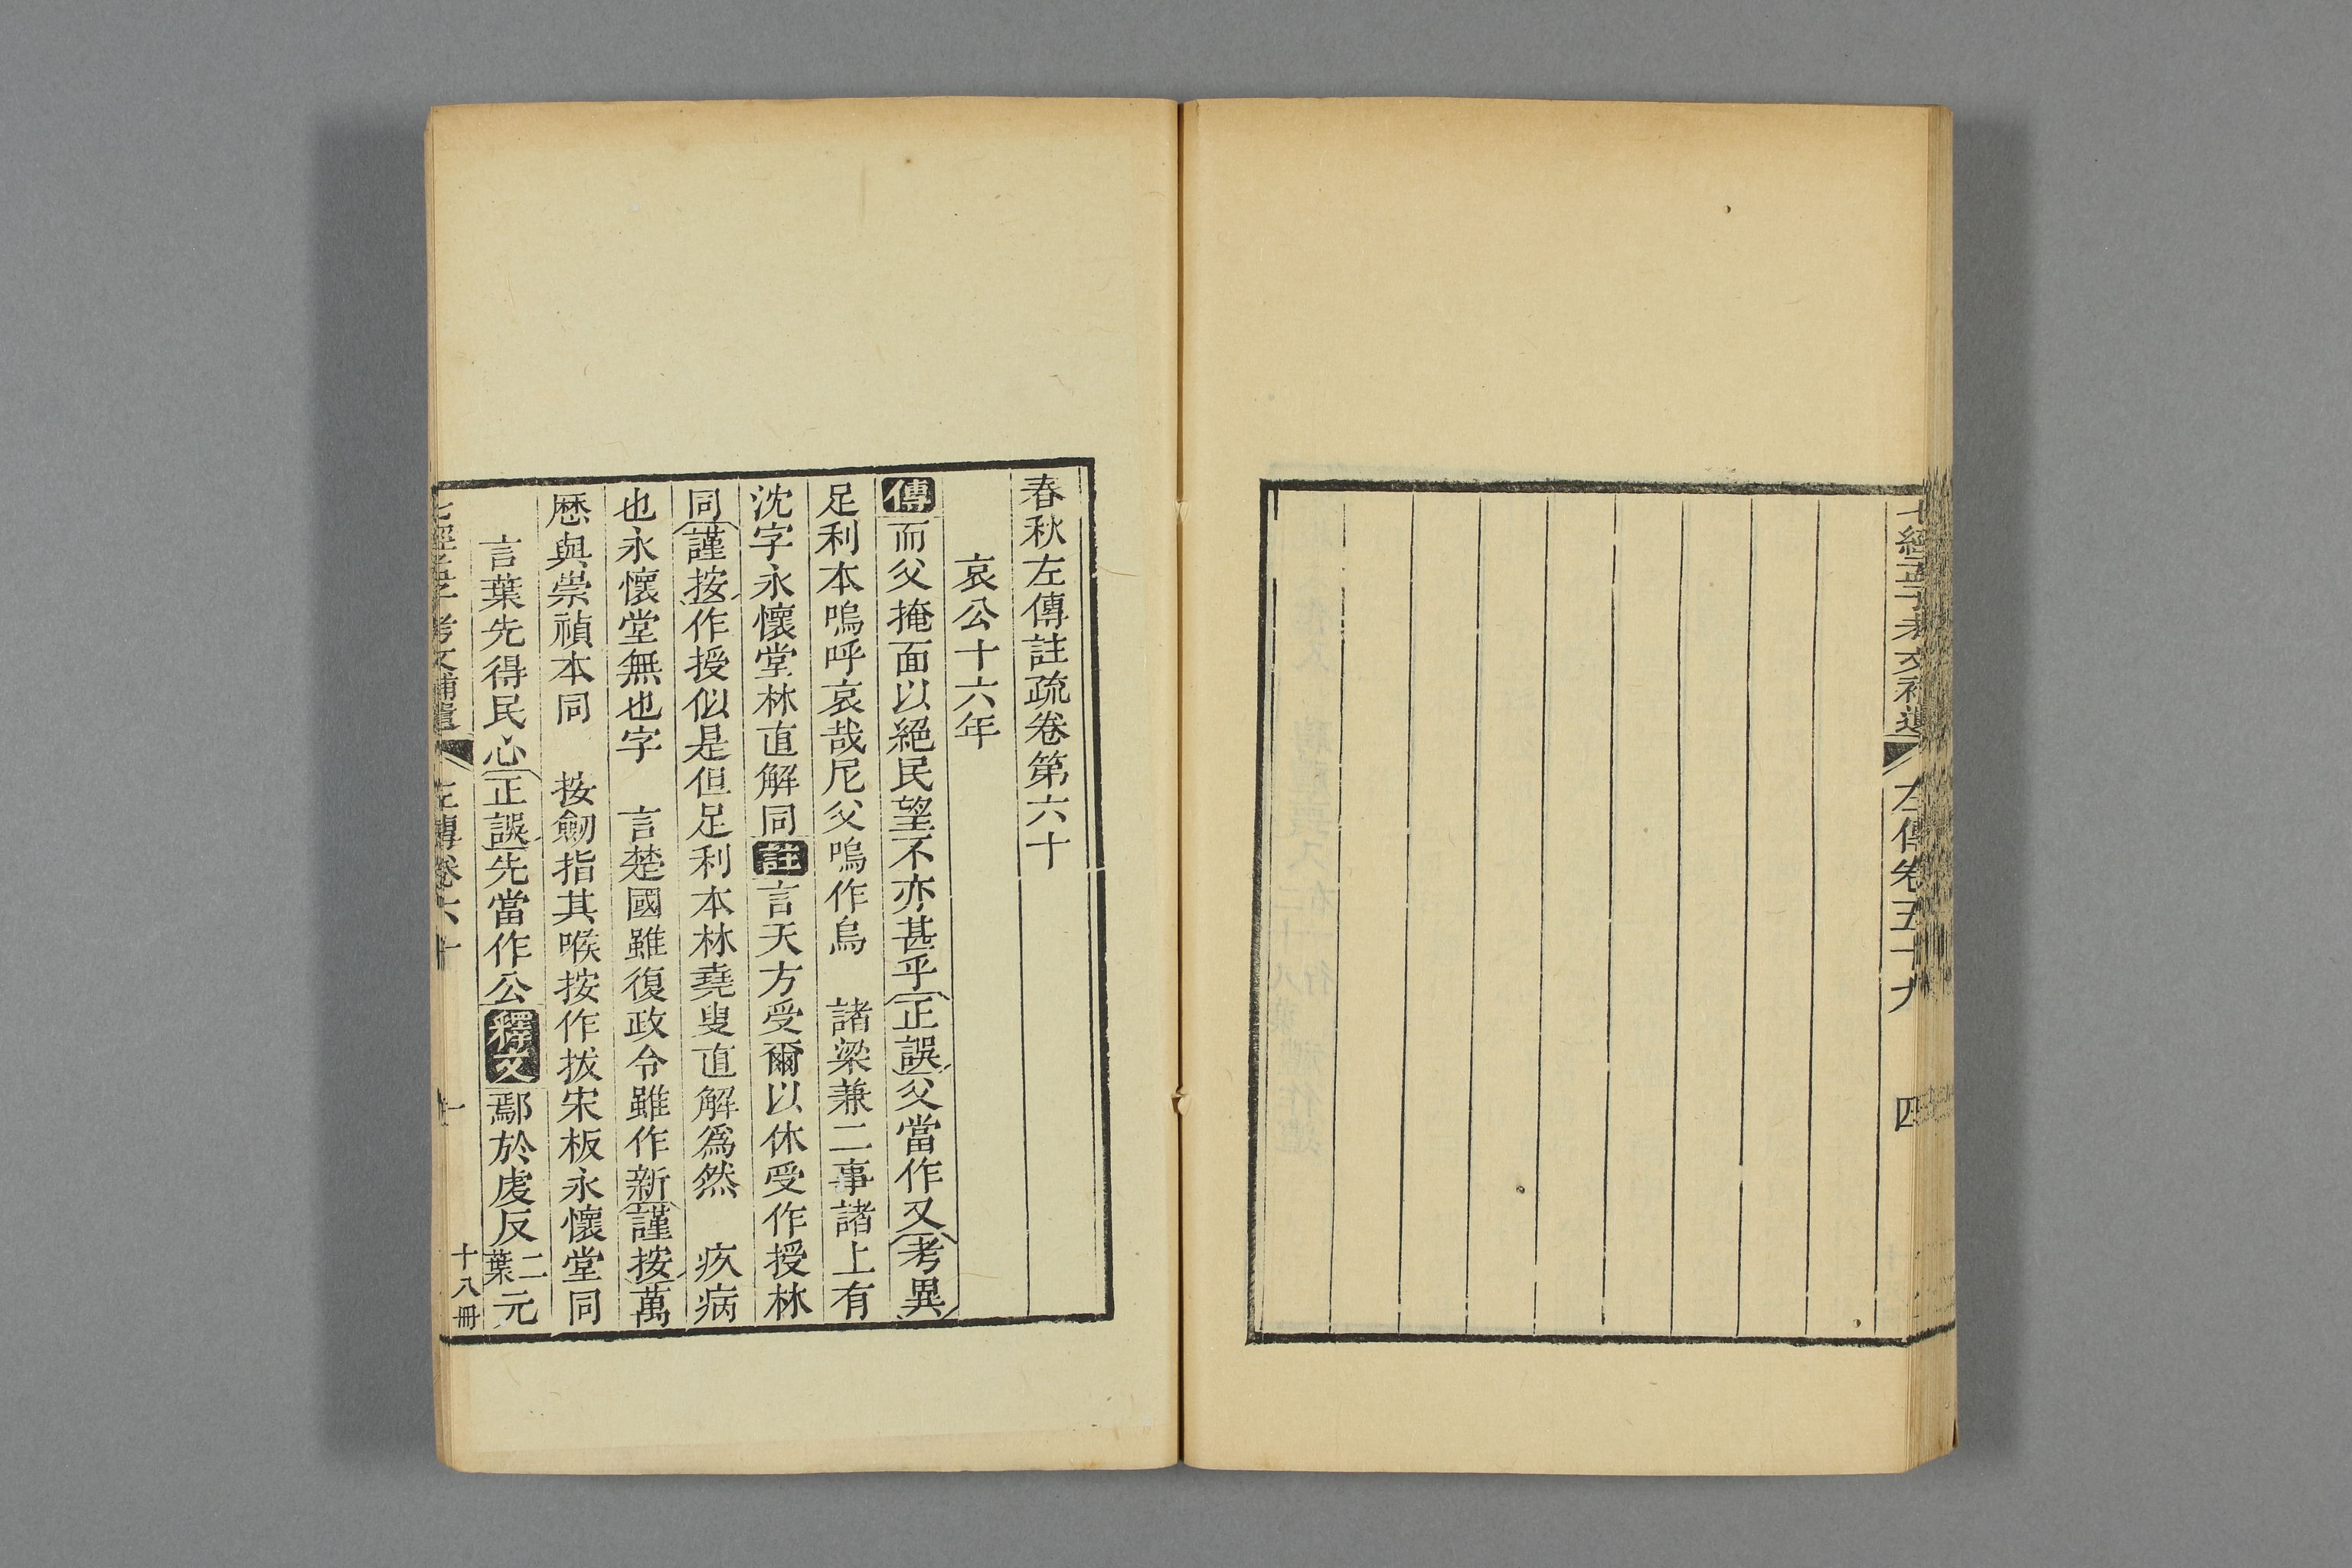 七經孟子考文補遺 左傳卷五十九 四
春秋左傳註疏卷第六十
哀公十六年
傳而父掩面以絕民望不亦甚乎正誤父當作又考異
足利本嗚呼哀哉尼父嗚作烏 諸梁兼二事諸上有
沈字永懷堂林直解同註言天方受爾以休受作授林
同謹按作授似是但足利本林堯叟直解爲然 疚病
也永懷堂無也字 言楚國雖復政令雖作新謹按萬
歷與崇禎本同 按劒指其喉按作拔宋板永懷堂同
言葉先得民心正誤先當作公釋文鄢於䖍反二葉元
七經孟子考文補遺 左傳卷六十 一 十八冊